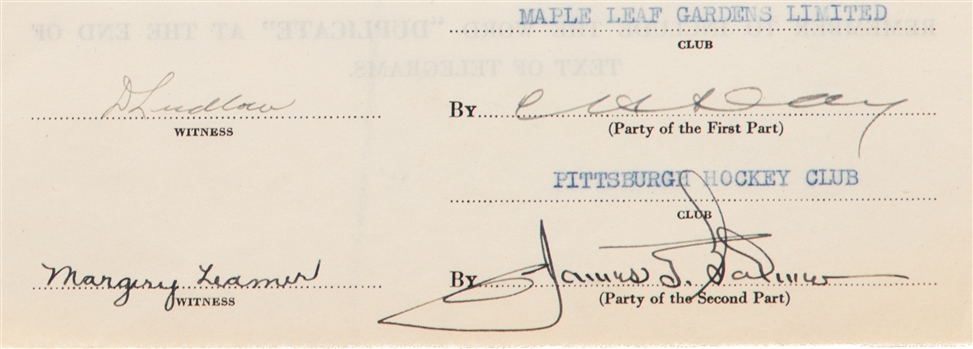 REMEMBER TO INCLUDE THE WORD "DUPLICATE" AT THE END OF
TEXT OF TELEGRAMS.
MAPLE LEAF GARDENS LIMITED
CLUB
D Ludlow By C H Day
WITNESS (Party of the First Part)
PITTSBURGH HOCKEY CLUB
CLUB
Margery Leamer By James J. Balmer
WITNESS (Party of the Second Part)